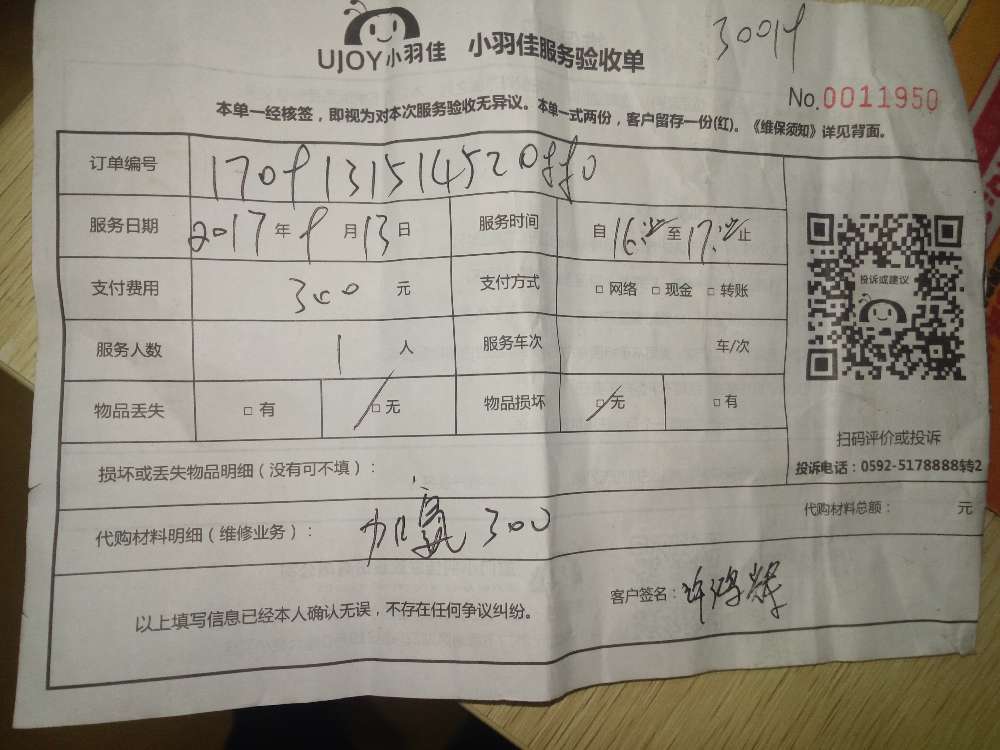 UJOY小羽佳 小羽佳服务验收单
No.0011950
本单一经核签，即视为对本次服务验收无异议。本单一式两份，客户留存一份(红)。《维保须知》详见背面。
订单编号
服务日期 2017年9月13日 服务时间 自16: 至17: 止
支付费用 300 元 支付方式 □ 网络 □ 现金 □ 转账
服务人数 1 人 服务车次 车/次
物品丢失 □ 有 □ 无 物品损坏 □ 无 □ 有
投诉或建议
扫码评价或投诉
投诉电话：0592-5178888转2
损坏或丢失物品明细（没有可不填）：
代购材料明细（维修业务）： 加氟 300
代购材料总额： 元
以上填写信息已经本人确认无误，不存在任何争议纠纷。
客户签名：